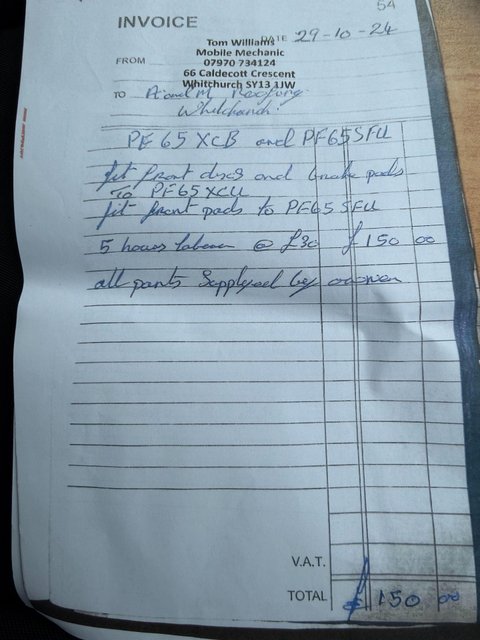 54
INVOICE
Tom Williams
DATE 29-10-24
Mobile Mechanic
FROM
07970 734124
66 Caldecott Crescent
Whitchurch SY13 1JW
TO A and M Roofing
Whitchurch
PF65 XCB and PF65 SFU
fit front discs and brake pads
TO PF65 XCU
fit front pads to PF65 SFU
5 hours labour @ £30 £150 00
all parts supplyed by
V.A.T.
TOTAL £ 150 00